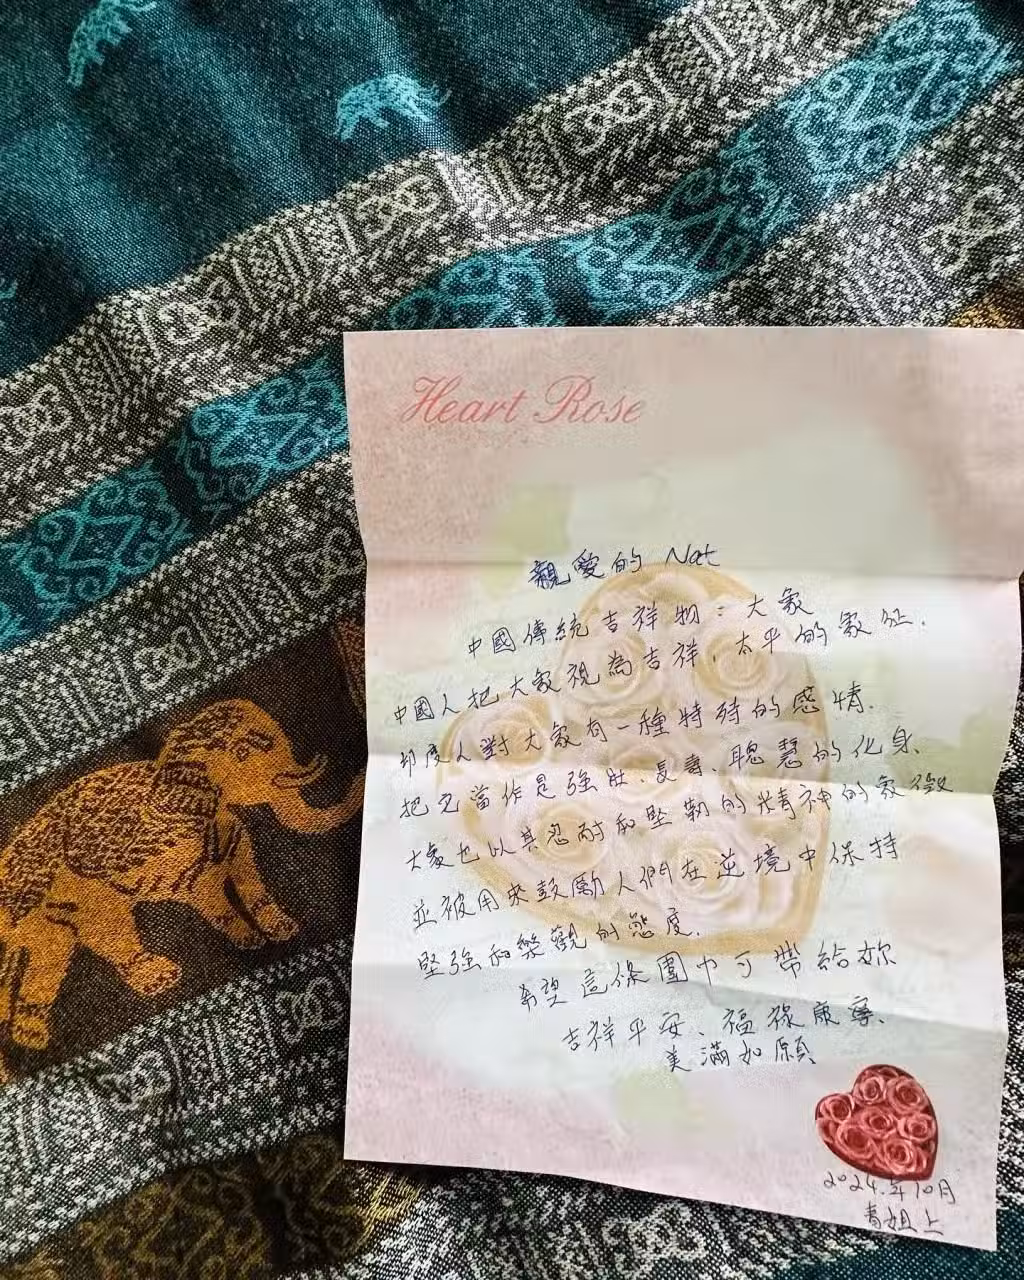 Heart Rose
親愛的 Nat
中國傳統吉祥物：大象
中國人把大象視為吉祥，太平的象征．
印度人對大象有一種特殊的感情．
把它當作是強壯、長壽、聰慧的化身、
大象也以其忍耐和堅韌的精神的象徵
並被用來鼓勵人們在逆境中保持
堅強和樂觀的態度．
希望這條圍巾可帶給妳
吉祥平安、福祿康寧、
美滿如願
2024.年10月
青姐上